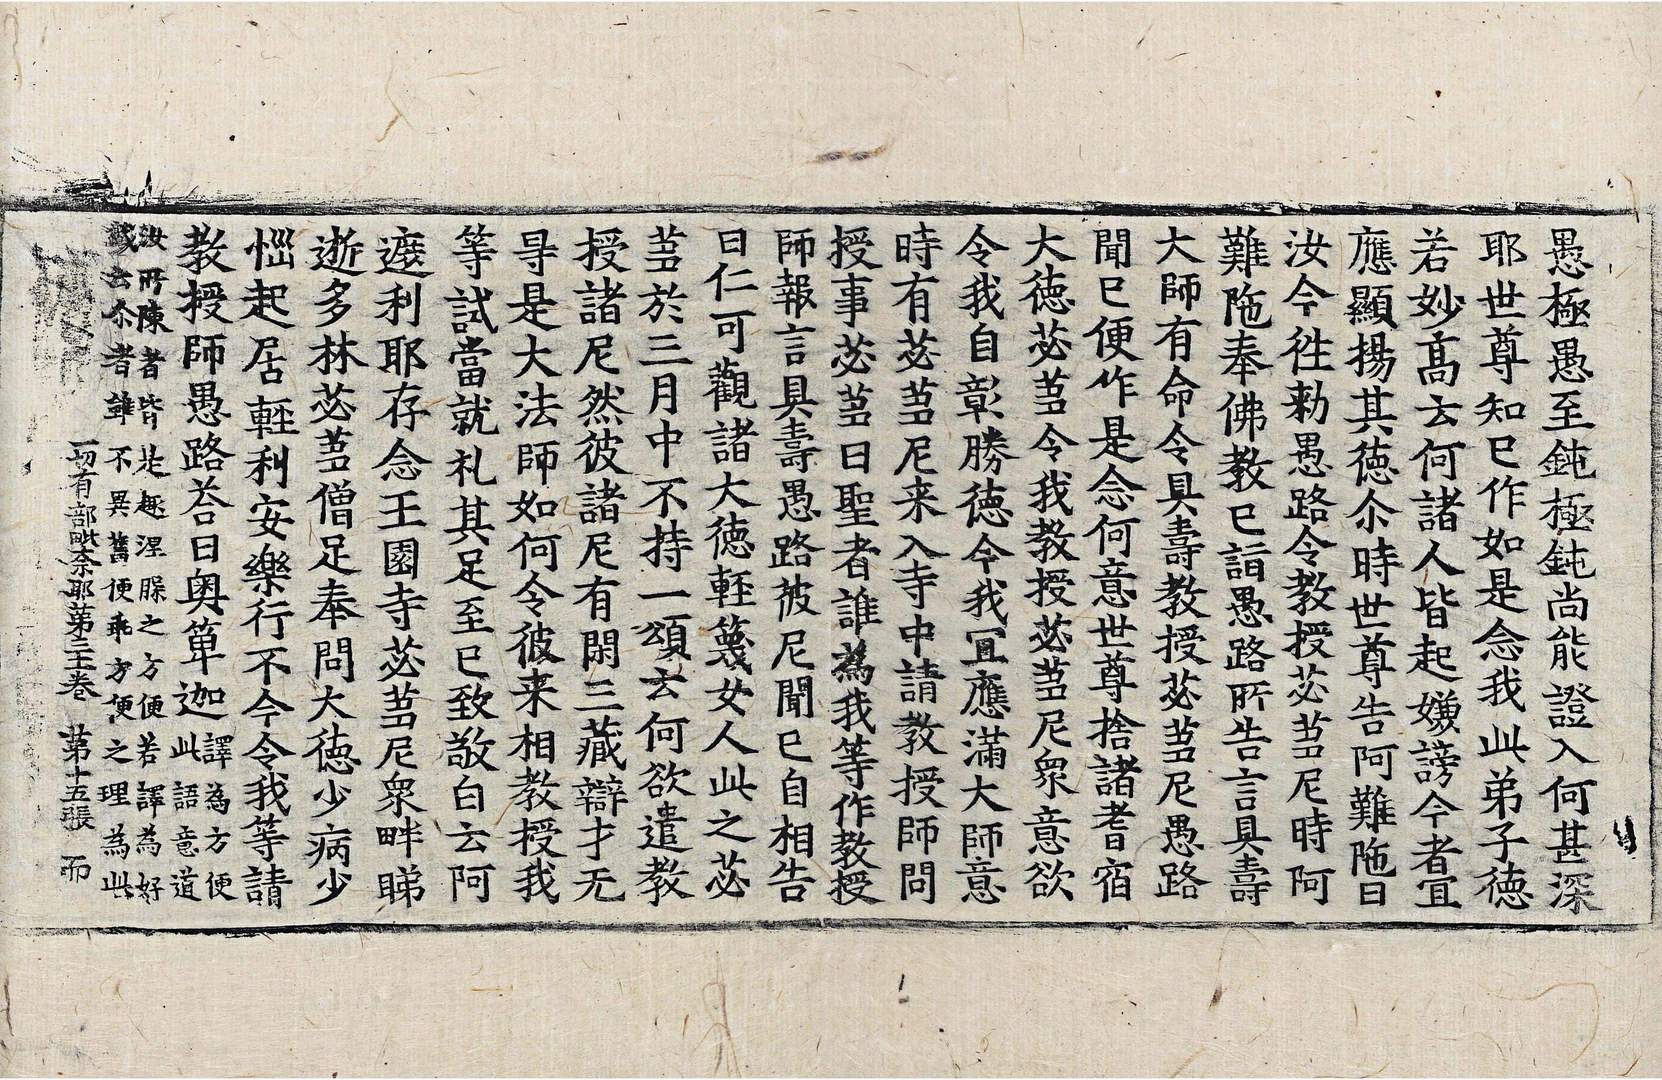 愚極愚至鈍極鈍尚能證入何甚深
耶世尊知已作如是念我此弟子德
若妙高云何諸人皆起嫌謗今者冝
應顯揚其德尒時世尊告阿難陁曰
汝今徃勑愚路令教授苾芻尼時阿
難陁奉佛教已詣愚路所告言具壽
大師有命令具壽教授苾芻尼愚路
聞已便作是念何意世尊捨諸耆宿
大德苾芻令我教授苾芻尼衆意欲
令我自彰勝德今我冝應滿大師意
時有苾芻尼来入寺中請教授師問
授事苾芻曰聖者誰爲我等作教授
師報言具壽愚路彼尼聞已自相告
曰仁可觀諸大德輕篾女人此之苾
芻於三月中不持一頌云何欲遣教
授諸尼然彼諸尼有閑三藏辯才无
㝵是大法師如何令彼来相教授我
等試當就礼其足至已致敬白云阿
遮利耶存念王園寺苾芻尼衆畔睇
逝多林苾芻僧足奉問大德少病少
惱起居輕利安樂行不今令我等請
教授師愚路荅曰奥箄迦譯為方便此語意道
汝所陳者皆是趣涅槃之方便若譯為好
或云尒者雖不異舊便乖方便之理為此
一切有部毗奈耶第三十一卷 第十五張 而